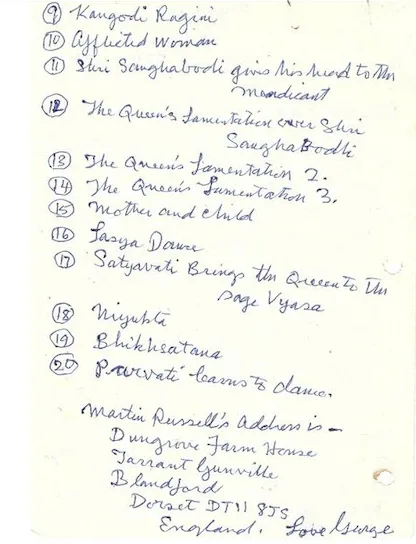 ⑨ Kangodi Ragini
⑩ Afflicted Woman
⑪ Shri Sanghabodi gives his head to the
mendicant
⑫ The Queen's Lamentation over Shri
SanghaBodhi
⑬ The Queen's Lamentation 2.
⑭ The Queen's Lamentation 3.
⑮ Mother and child
⑯ Lasya Dance
⑰ Satyavati Brings the Queen to the
sage Vyasa
⑱ Niyukta
⑲ Bhikhsatana
⑳ Parvati learns to dance.
Martin Russell's Address is –
Dungrove Farm House
Tarrant Gunville
Blandford
Dorset DT11 8JS
England. Love George